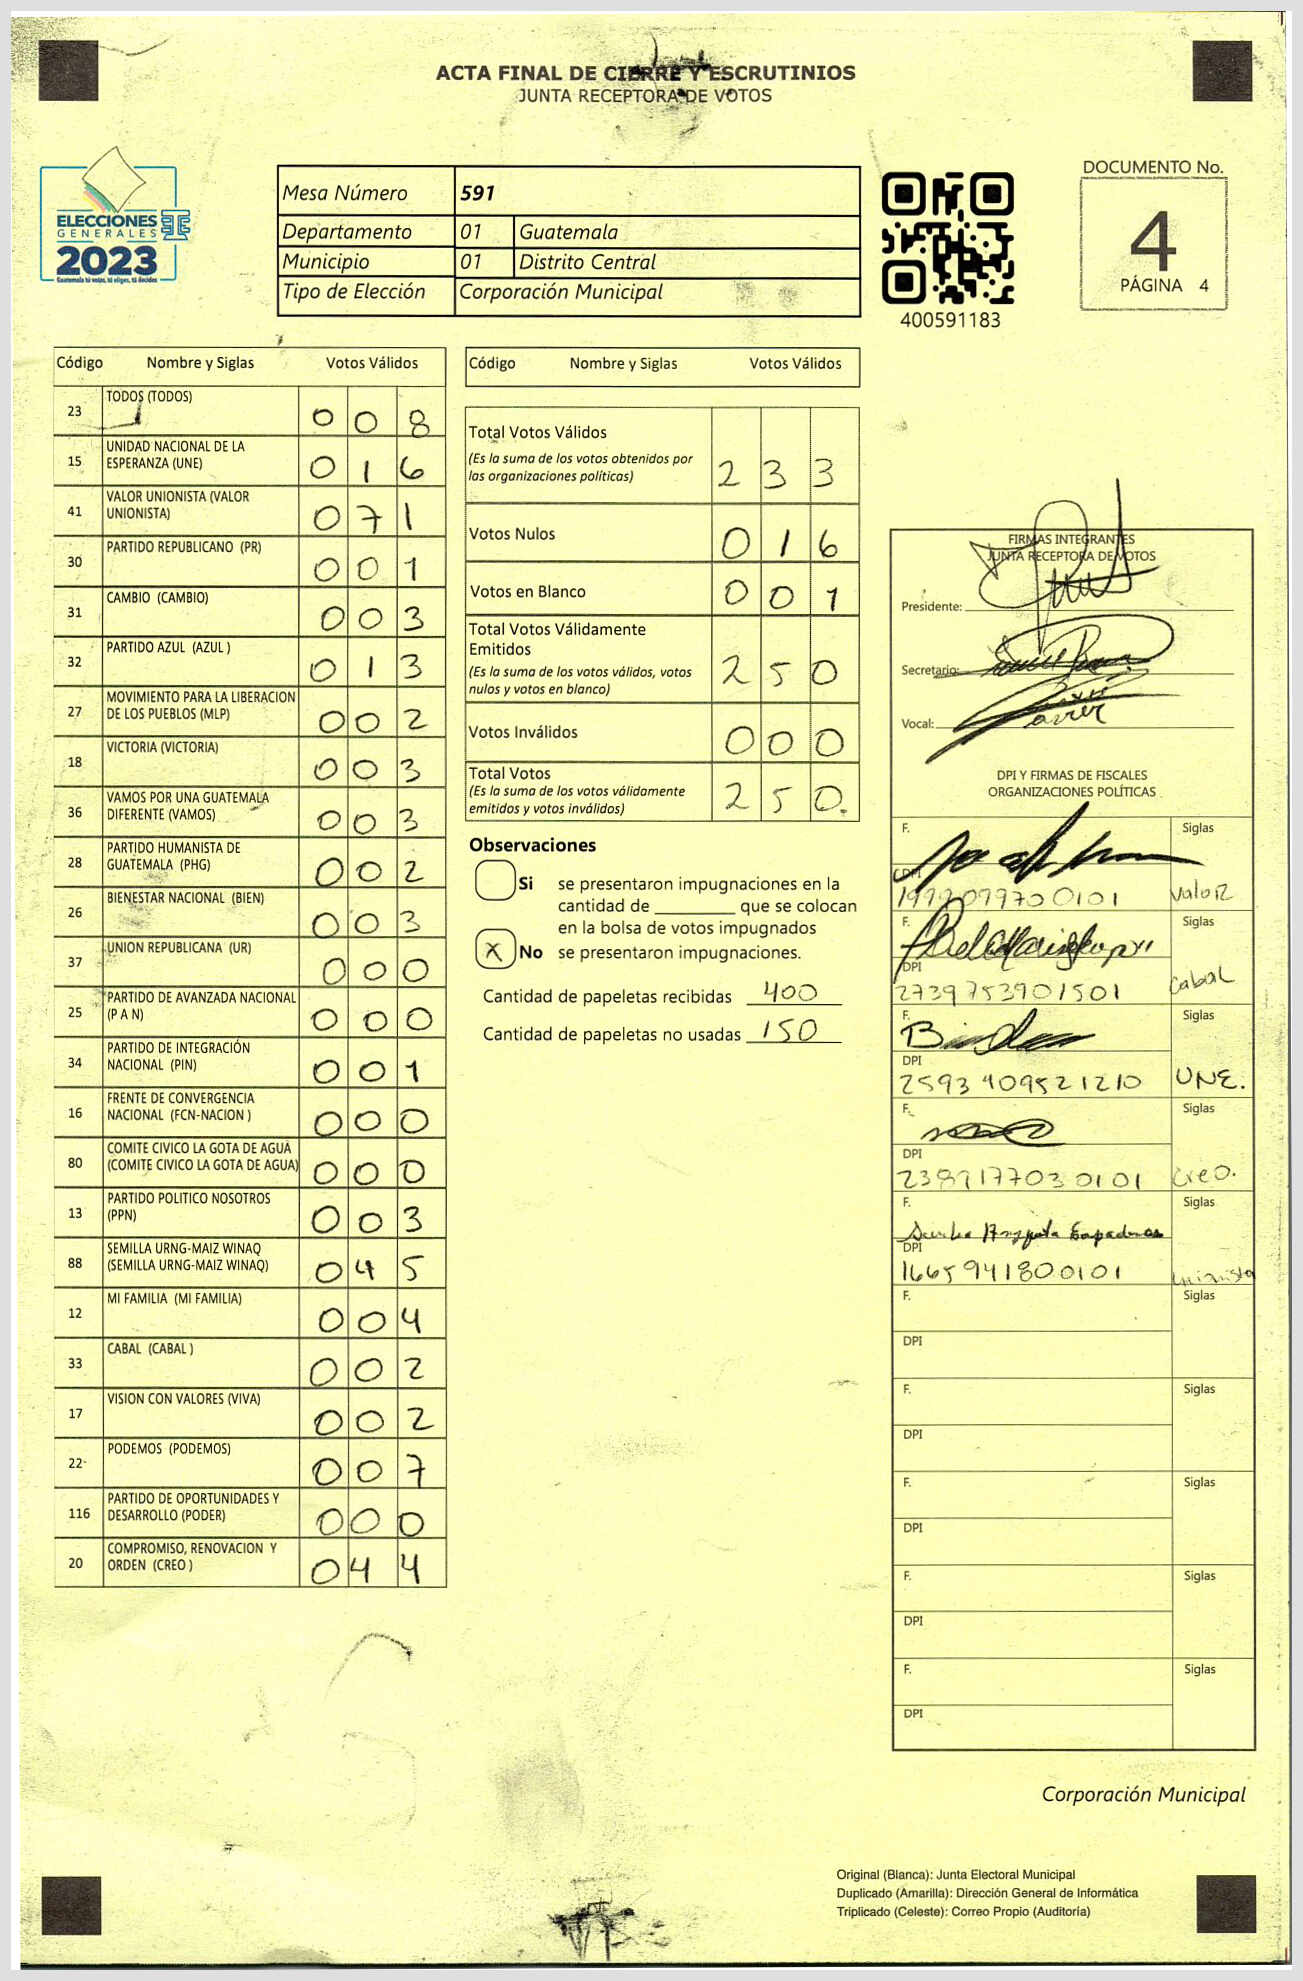 ACTA FINAL DE CIERRE Y ESCRUTINIOS
JUNTA RECEPTORA DE VOTOS
ELECCIONES
GENERALES
2023
Guatemala tú votas, tú eliges, tú decides
Mesa Número 591
Departamento 01 Guatemala
Municipio 01 Distrito Central
Tipo de Elección Corporación Municipal
400591183
DOCUMENTO No.
4
PÁGINA 4
Código Nombre y Siglas Votos Válidos
23 TODOS (TODOS) 0 0 8
15 UNIDAD NACIONAL DE LA
ESPERANZA (UNE) 0 1 6
41 VALOR UNIONISTA (VALOR
UNIONISTA) 0 7 1
30 PARTIDO REPUBLICANO (PR) 0 0 1
31 CAMBIO (CAMBIO) 0 0 3
32 PARTIDO AZUL (AZUL ) 0 1 3
27 MOVIMIENTO PARA LA LIBERACION
DE LOS PUEBLOS (MLP) 0 0 2
18 VICTORIA (VICTORIA) 0 0 3
36 VAMOS POR UNA GUATEMALA
DIFERENTE (VAMOS) 0 0 3
28 PARTIDO HUMANISTA DE
GUATEMALA (PHG) 0 0 2
26 BIENESTAR NACIONAL (BIEN) 0 0 3
37 UNION REPUBLICANA (UR) 0 0 0
25 PARTIDO DE AVANZADA NACIONAL
(P A N) 0 0 0
34 PARTIDO DE INTEGRACIÓN
NACIONAL (PIN) 0 0 1
16 FRENTE DE CONVERGENCIA
NACIONAL (FCN-NACION ) 0 0 0
80 COMITE CIVICO LA GOTA DE AGUA
(COMITE CIVICO LA GOTA DE AGUA) 0 0 0
13 PARTIDO POLITICO NOSOTROS
(PPN) 0 0 3
88 SEMILLA URNG-MAIZ WINAQ
(SEMILLA URNG-MAIZ WINAQ) 0 4 5
12 MI FAMILIA (MI FAMILIA) 0 0 4
33 CABAL (CABAL ) 0 0 2
17 VISION CON VALORES (VIVA) 0 0 2
22 PODEMOS (PODEMOS) 0 0 7
116 PARTIDO DE OPORTUNIDADES Y
DESARROLLO (PODER) 0 0 0
20 COMPROMISO, RENOVACION Y
ORDEN (CREO ) 0 4 4
Código Nombre y Siglas Votos Válidos
Total Votos Válidos
(Es la suma de los votos obtenidos por
las organizaciones políticas) 2 3 3
Votos Nulos 0 1 6
Votos en Blanco 0 0 1
Total Votos Válidamente
Emitidos
(Es la suma de los votos válidos, votos
nulos y votos en blanco) 2 5 0
Votos Inválidos 0 0 0
Total Votos
(Es la suma de los votos válidamente
emitidos y votos inválidos) 2 5 0.
Observaciones
Si se presentaron impugnaciones en la
cantidad de ________ que se colocan
en la bolsa de votos impugnados
X No se presentaron impugnaciones.
Cantidad de papeletas recibidas 400
Cantidad de papeletas no usadas 150
FIRMAS INTEGRANTES
JUNTA RECEPTORA DE VOTOS
Presidente:
Secretario:
Vocal:
DPI Y FIRMAS DE FISCALES
ORGANIZACIONES POLÍTICAS
F. Siglas
DPI
Valor
F. Siglas
DPI
2739753901501 Cabal
F. Siglas
DPI
2593409521210 UNE.
F. Siglas
DPI
2389177030101 Creo.
F. Siglas
DPI
1665941800101
F. Siglas
DPI
F. Siglas
DPI
F. Siglas
DPI
F. Siglas
DPI
F. Siglas
DPI
Corporación Municipal
Original (Blanca): Junta Electoral Municipal
Duplicado (Amarilla): Dirección General de Informática
Triplicado (Celeste): Correo Propio (Auditoría)